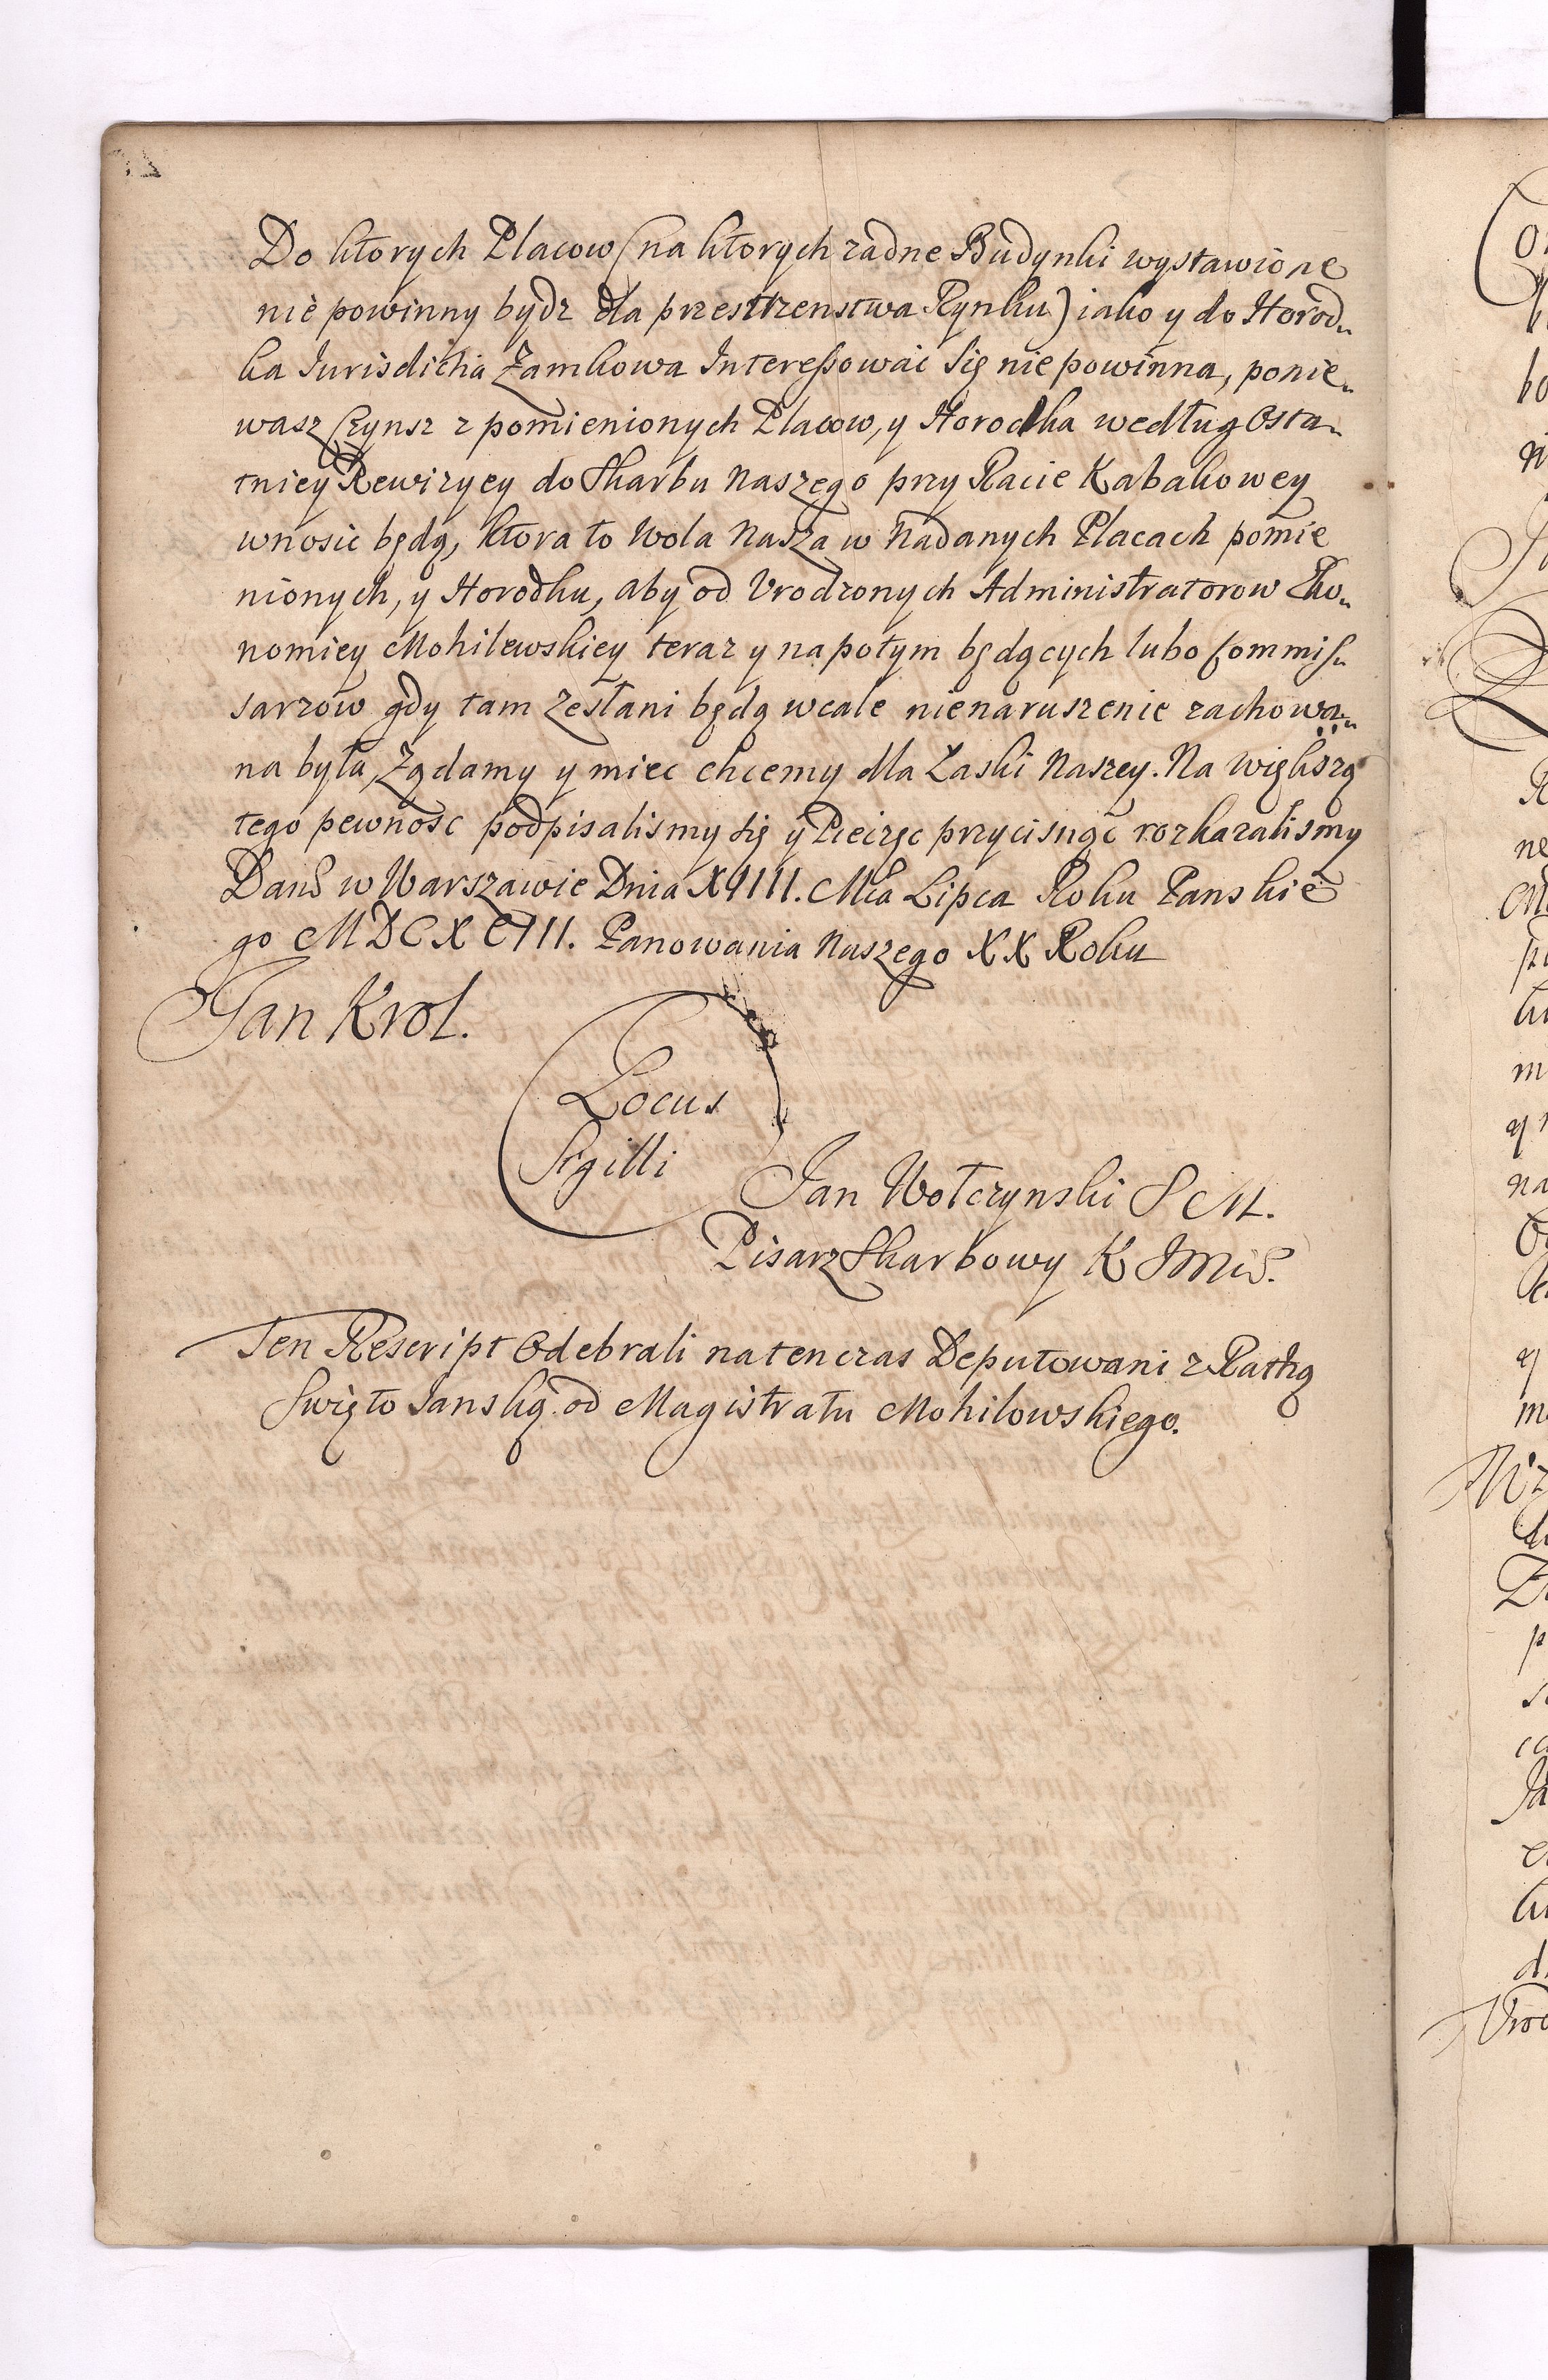 Do ktorych Placow (na ktorych zadne Budynki wystawione
nie powinny bydz dla przestrzenstwa Rynku) iako y do Horod„
ka Jurisdictia Zamkowa Interessowac się nie powinna, ponie„
wasz Czynsz z pomienionych Placow, y Horodka według Osta„
tniey Rewizyey do Skarbu Naszego przy Racie Kabakowey
wnosic będą, ktora to Wola Nasza w Nadanych Placach pomie
nionych, y Horodku, aby od Vrodzonych Administratorow Eko„
nomiey Mohilewskiey teraz y napotym będących lubo Commis„
sarzow gdy tam zesłani będą wcale nienaruszenie zachowa„
na była, Ządamy y miec chcemy dla Łaski Naszey. Na większą
tego pewnosc podpisalismy się y Pieczęc przycisnąc rozkazalismy
Dand w Warszawie Dnia XVIIII. Mca Lipca Roku Panskie
go MDCXCIII. Panowania Naszego XX Roku
Jan Krol.
Locus
Sigilli
Jan Wołczynski S M.
Pisarz Skarbowy K JMci.
Ten Rescript Odebrali natenczas Deputowani z Ratką
Swięto Janską od Magistratu Mohilowskiego.